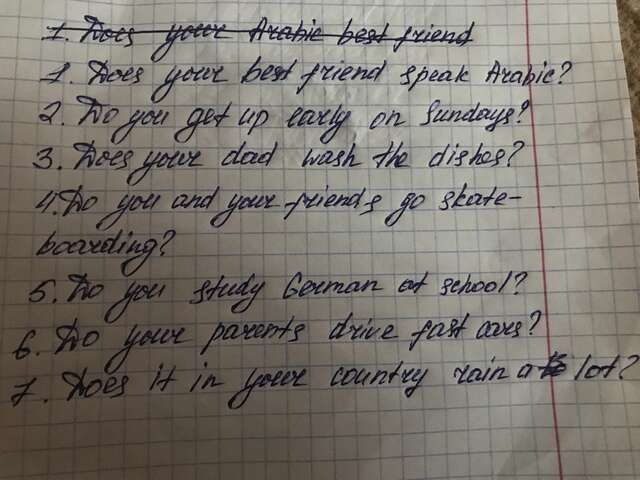 1. Does your Arabic best friend
1. Does your best friend speak Arabic?
2. Do you get up early on Sundays?
3. Does your dad wash the dishes?
4. Do you and your friends go skate-
boarding?
5. Do you study German at school?
6. Do your parents drive fast cars?
7. Does it in your country rain a lot?